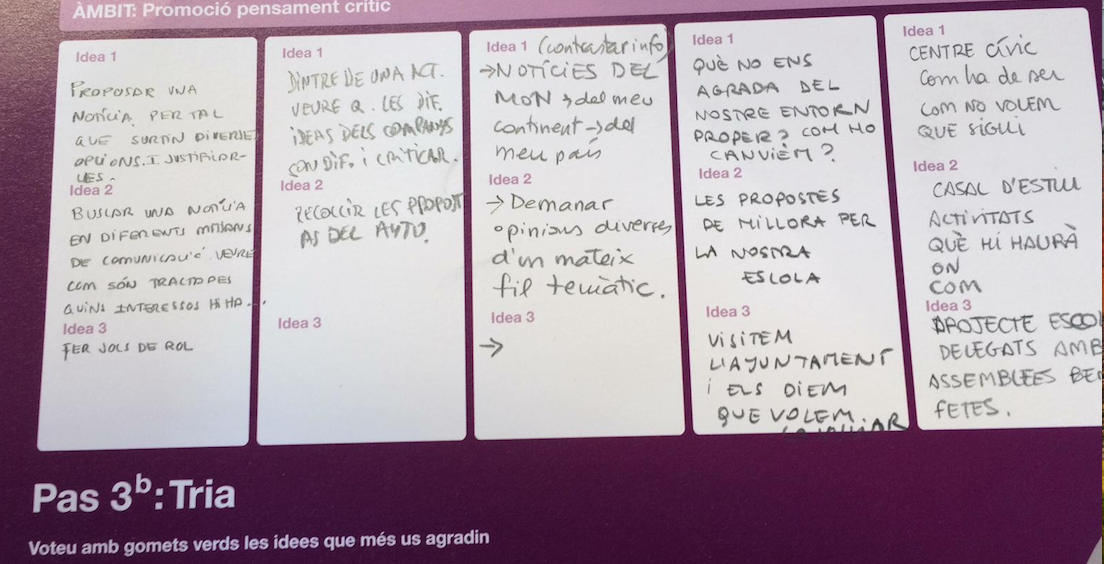 ÀMBIT: Promoció pensament crític
Idea 1
PROPOSAR UNA
NOTÍCIA PER TAL
QUE SURTIN DIVERSES
OPCIONS. I JUSTIFICAR-
LES.
Idea 2
BUSCAR UNA NOTÍCIA
EN DIFERENTS MITJANS
DE COMUNICACIÓ. VEURE
COM SÓN TRACTADES
QUINS INTERESSOS HI HA...
Idea 3
FER JOCS DE ROL
Idea 1
DINTRE DE UNA ACT.
VEURE Q. LES DIF.
IDEAS DELS COMPANYS
CON DIF. i CRITICAR.
Idea 2
RECOLLIR LES PROPOST
AS DEL AYTO.
Idea 3
Idea 1 (contrastar info)
→ NOTÍCIES DEL
MÓN → del meu
continent → del
meu país
Idea 2
→ Demanar
opinions diverses
d'un mateix
fil temàtic.
Idea 3
→
Idea 1
QUÈ NO ENS
AGRADA DEL
NOSTRE ENTORN
PROPER? COM HO
CANVIEM?
Idea 2
LES PROPOSTES
DE MILLORA PER
LA NOSTRA
ESCOLA
Idea 3
VISITEM
L'AJUNTAMENT
i ELS DIEM
QUE VOLEM
CANVIAR
Idea 1
CENTRE CÍVIC
Com ha de ser
Com NO VOLEM
QUE SIGUI
Idea 2
CASAL D'ESTIU
ACTIVITATS
QUÈ HI HAURÀ
ON
COM
Idea 3
PROJECTE ESCOL
DELEGATS AMB
ASSEMBLEES BEN
FETES.
Pas 3b: Tria
Voteu amb gomets verds les idees que més us agradin